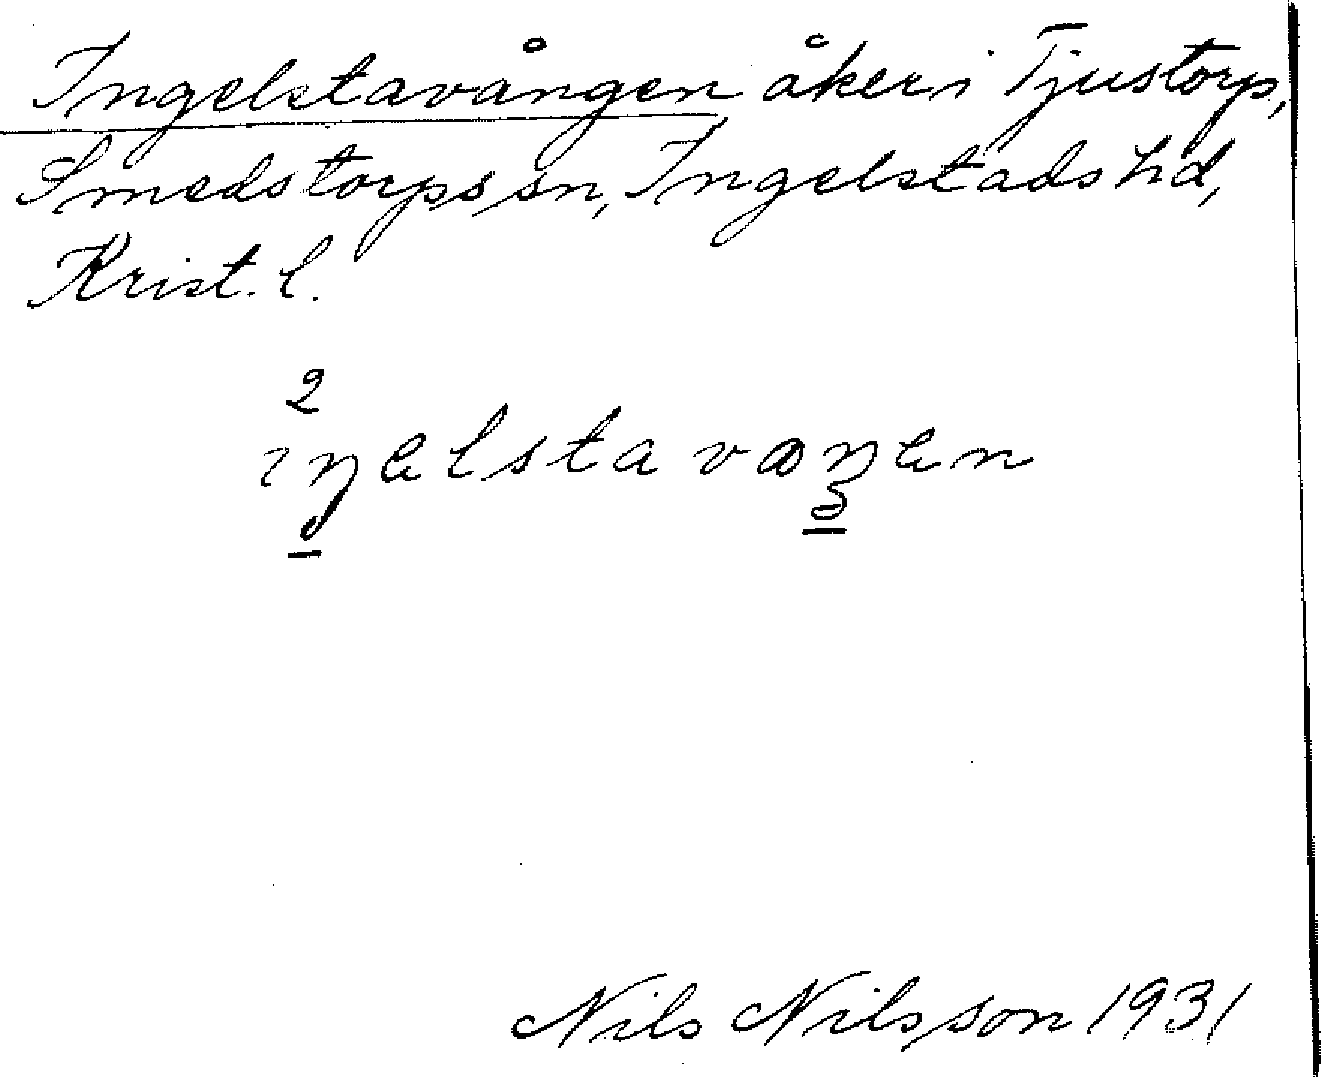 Ingelstavången åker i Tjustorp,
Smedstorps sn, Ingelstads hd,
Krist. l.
2
iŋelsta vaŋen
Nils Nilsson 1931